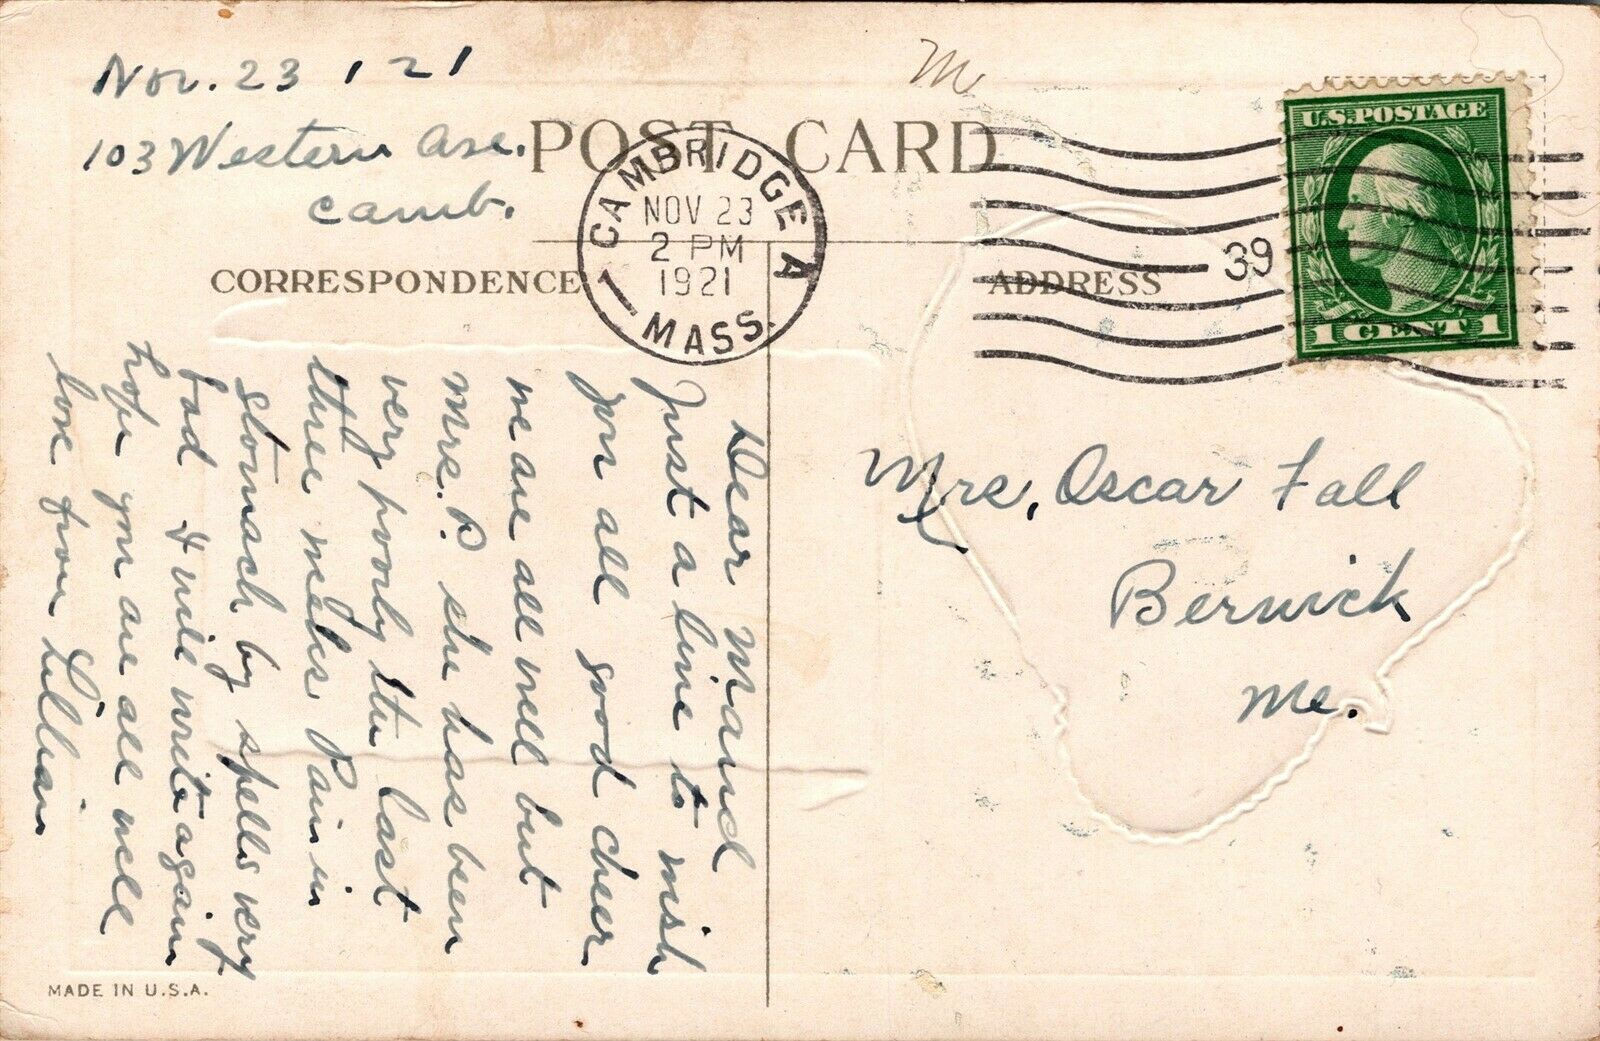 Nov. 23 / 21
103 Western Ave.
Camb.
M
POST CARD
CAMBRIDGE A
NOV 23
2 PM
1921
MASS.
39
U.S. POSTAGE
1 CENT 1
CORRESPONDENCE
ADDRESS
Dear Maud
Just a line to wish
you all good cheer
we are all well but
Mrs. P. she has been
very poorly the last
three weeks Pain in
stomach by spells very
bad & will write again
hope you are all well
love from Lillian
Mrs. Oscar Fall
Berwick
Me.
MADE IN U.S.A.